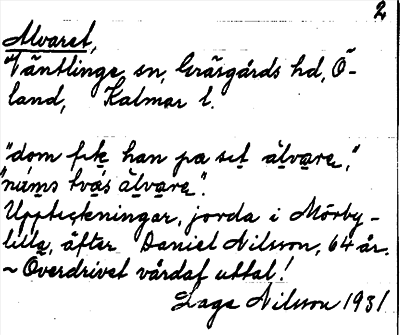 2
Alvaret,
Väntlinge sn, Gräsgårds hd, Ö-
land, Kalmar l.
"dom fek han pa set älvare,"
"nams tvas älvare".
Uppteckningar, jorda i Mörby-
lilla, äfter Daniel Nilsson, 64 år.
~ Överdrivet vårdat uttal!
Lage Nilsson 1931